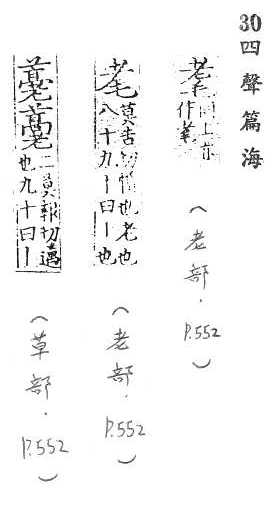 30四聲篇海
同上亦
作
(老部.P.552)
耄
莫告切惛也老也
八十九丨曰丨也
(老部.P.552)
二莫報切
也九十曰丨
(草部.P.552)